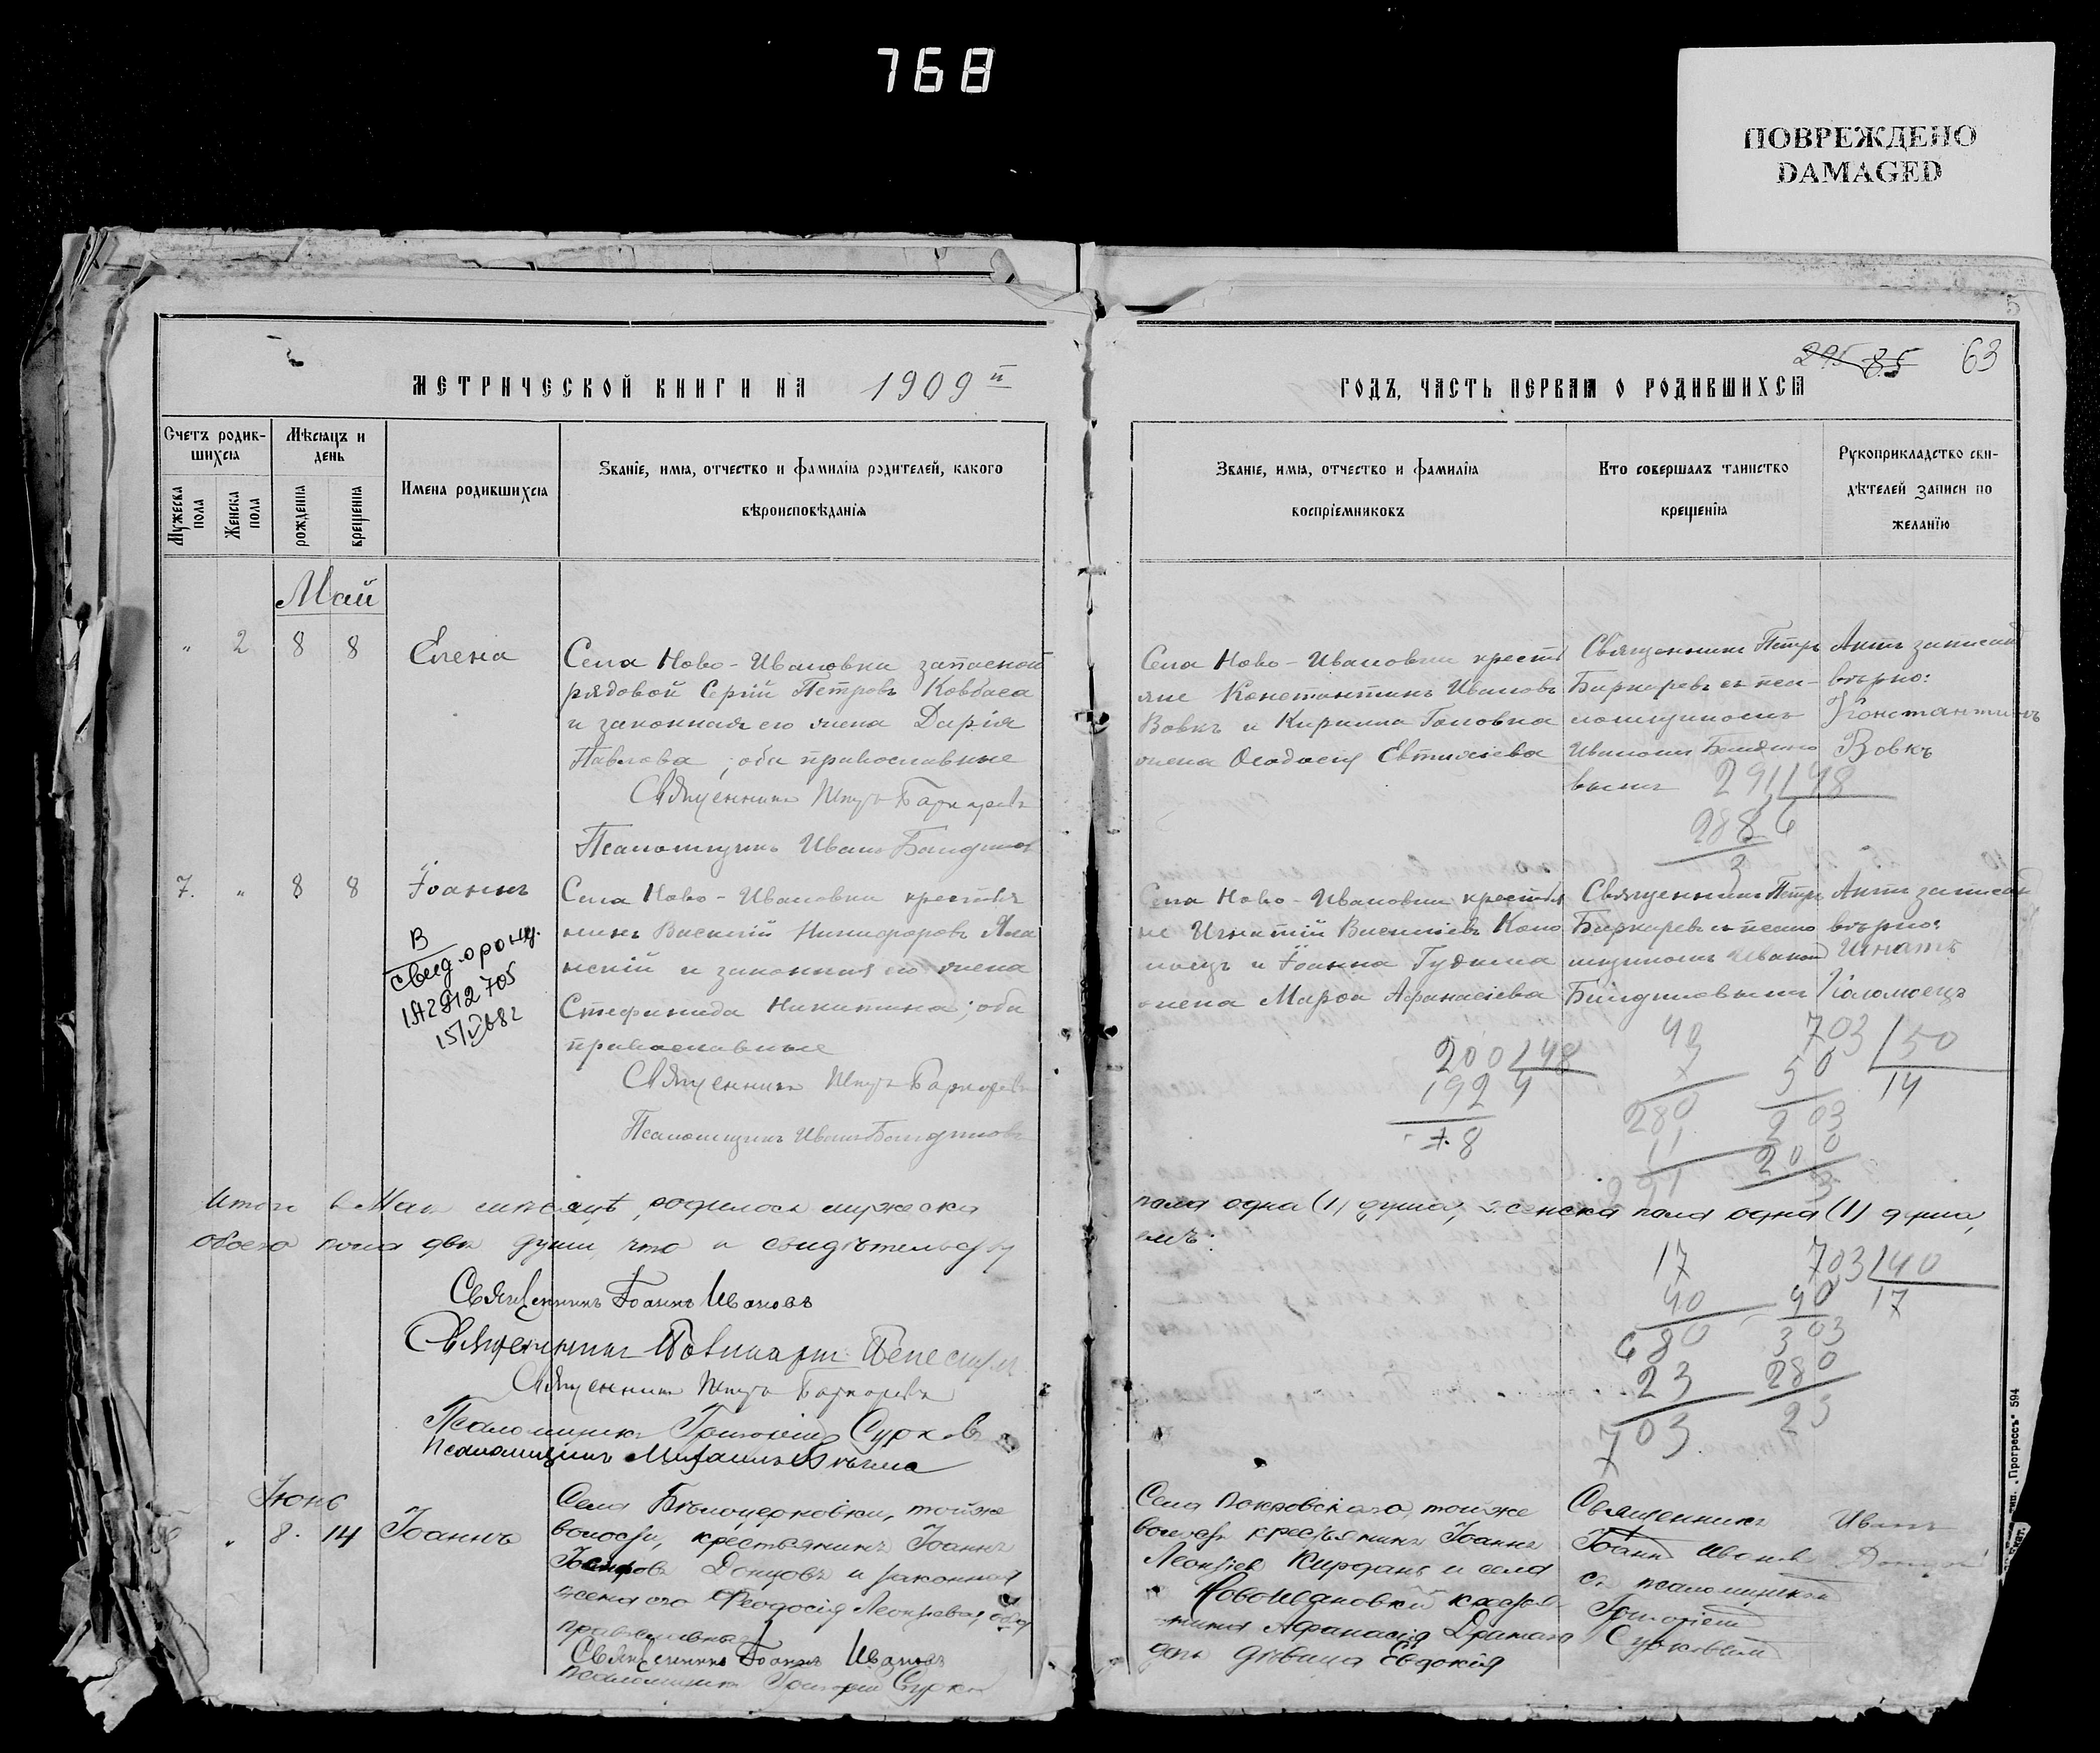 768
ПОВРЕЖДЕНО
DAMAGED
МЕТРИЧЕСКОЙ КНИГИ НА 1909 й
Счетъ родив-
шихся
Мѣсяцъ и
день
Имена родившихся
Званіе, имя, отчество и фамилія родителей, какого
вѣроисповѣданія
Мужеска пола
Женска пола
рожденія
крещенія
Май
" 2 8 8 Елена
Села Ново-Ивановки запасной
рядовой Сергій Петровъ Ковбаса
и законная его жена Дарія
Павлова; оба православные
Священникъ Петръ
Псаломщикъ Иванъ
7. " 8 8 Іоаннъ
В
свид. о рожд.
15/V
Села Ново-Ивановки крестья
нинъ Василій Никифоровъ
и законная его жена
Стефанида Никитина; оба
православные
Священникъ Петръ
Псаломщикъ Иванъ
Итого въ Маѣ мѣсяцѣ родилось мужеска
обоего пола двѣ души, что и свидѣтельству
Священникъ Іоаннъ Ивановъ
Священникъ
Священникъ Петръ
Псаломщикъ Григорій Сурковъ
Псаломщикъ Михаилъ
Іюнь
" 8. 14 Іоаннъ
Села Бѣлоцерковки, той же
волости, крестьянинъ Іоаннъ
Донцовъ и законная
жена его Феодосія Леонтіева, оба
православные
Священникъ Іоаннъ Ивановъ
Псаломщикъ Григорій Сурковъ
5
295 85 63
ГОДЪ, ЧАСТЬ ПЕРВАЯ О РОДИВШИХСЯ
Званіе, имя, отчество и фамилія
воспріемниковъ
Кто совершалъ таинство
крещенія
Рукоприкладство сви-
дѣтелей записи по
желанію
Села Ново-Ивановки кресть
яне Константинъ Ивановъ
Вовкъ и Кирилла Головка
жена Феодосія Евтихіева
Священникъ Петръ
съ пса-
ломщикомъ
Иваномъ
Актъ записанъ
вѣрно:
Константинъ
Вовкъ
291 48
288 6
3
Села Ново-Ивановки крестья
не Игнатій Василіевъ Коло
моецъ и Іоанна Гудима
жена Марфа Афанасіева
Священникъ Петръ
съ псало
мщикомъ Иваномъ
Актъ записанъ
вѣрно:
Игнатъ
Коломоецъ
200 48
192 4
8
40
7
280
11
703 50
50 14
203
200
3
пола одна (1) душа, женска пола одна (1) душа,
емъ:
17
40
680
23
703
703 40
40 17
303
280
23
Села Покровскаго, той же
волости крестьянинъ Іоаннъ
Леонтіевъ Кирданъ и села
Ново-Ивановки крестья
нина Афанасія
дочь дѣвица Евдокія
Священникъ
Іоаннъ Ивановъ
съ псаломщикомъ
Григоріемъ
Сурковымъ
Иванъ
тип. „Прогрессъ“ 594